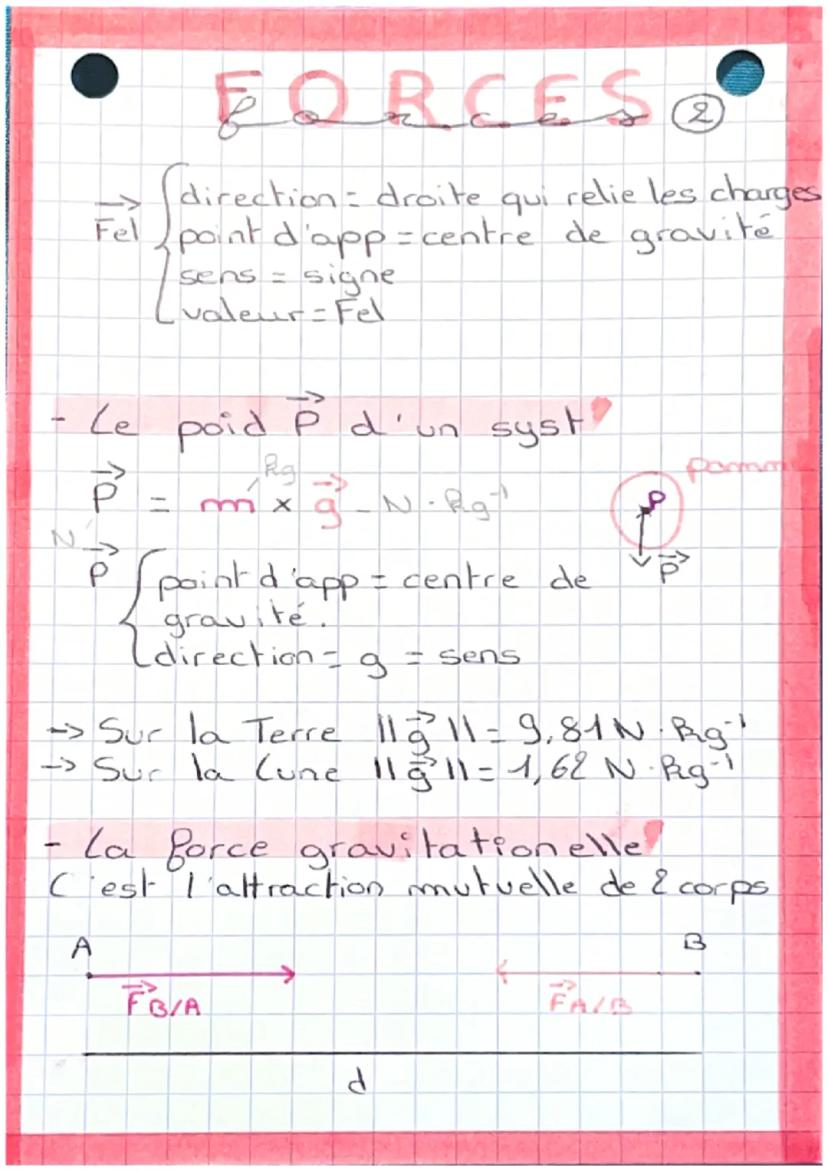 FORCES
forces ②
Fel→ { direction = droite qui relie les charges
point d'app = centre de gravité
sens = signe
valeur = Fel
- Le poid P→ d'un syst
P→ = m × g→
N kg N·kg⁻¹
pomm
P
P→
P→ { point d'app = centre de
gravité.
direction = g = sens
-> Sur la Terre ||g→|| = 9,81 N·kg⁻¹
-> Sur la Lune ||g→|| = 1,62 N·kg⁻¹
- La force gravitationelle
C'est l'attraction mutuelle de 2 corps
A B
F→ B/A F→ A/B
d